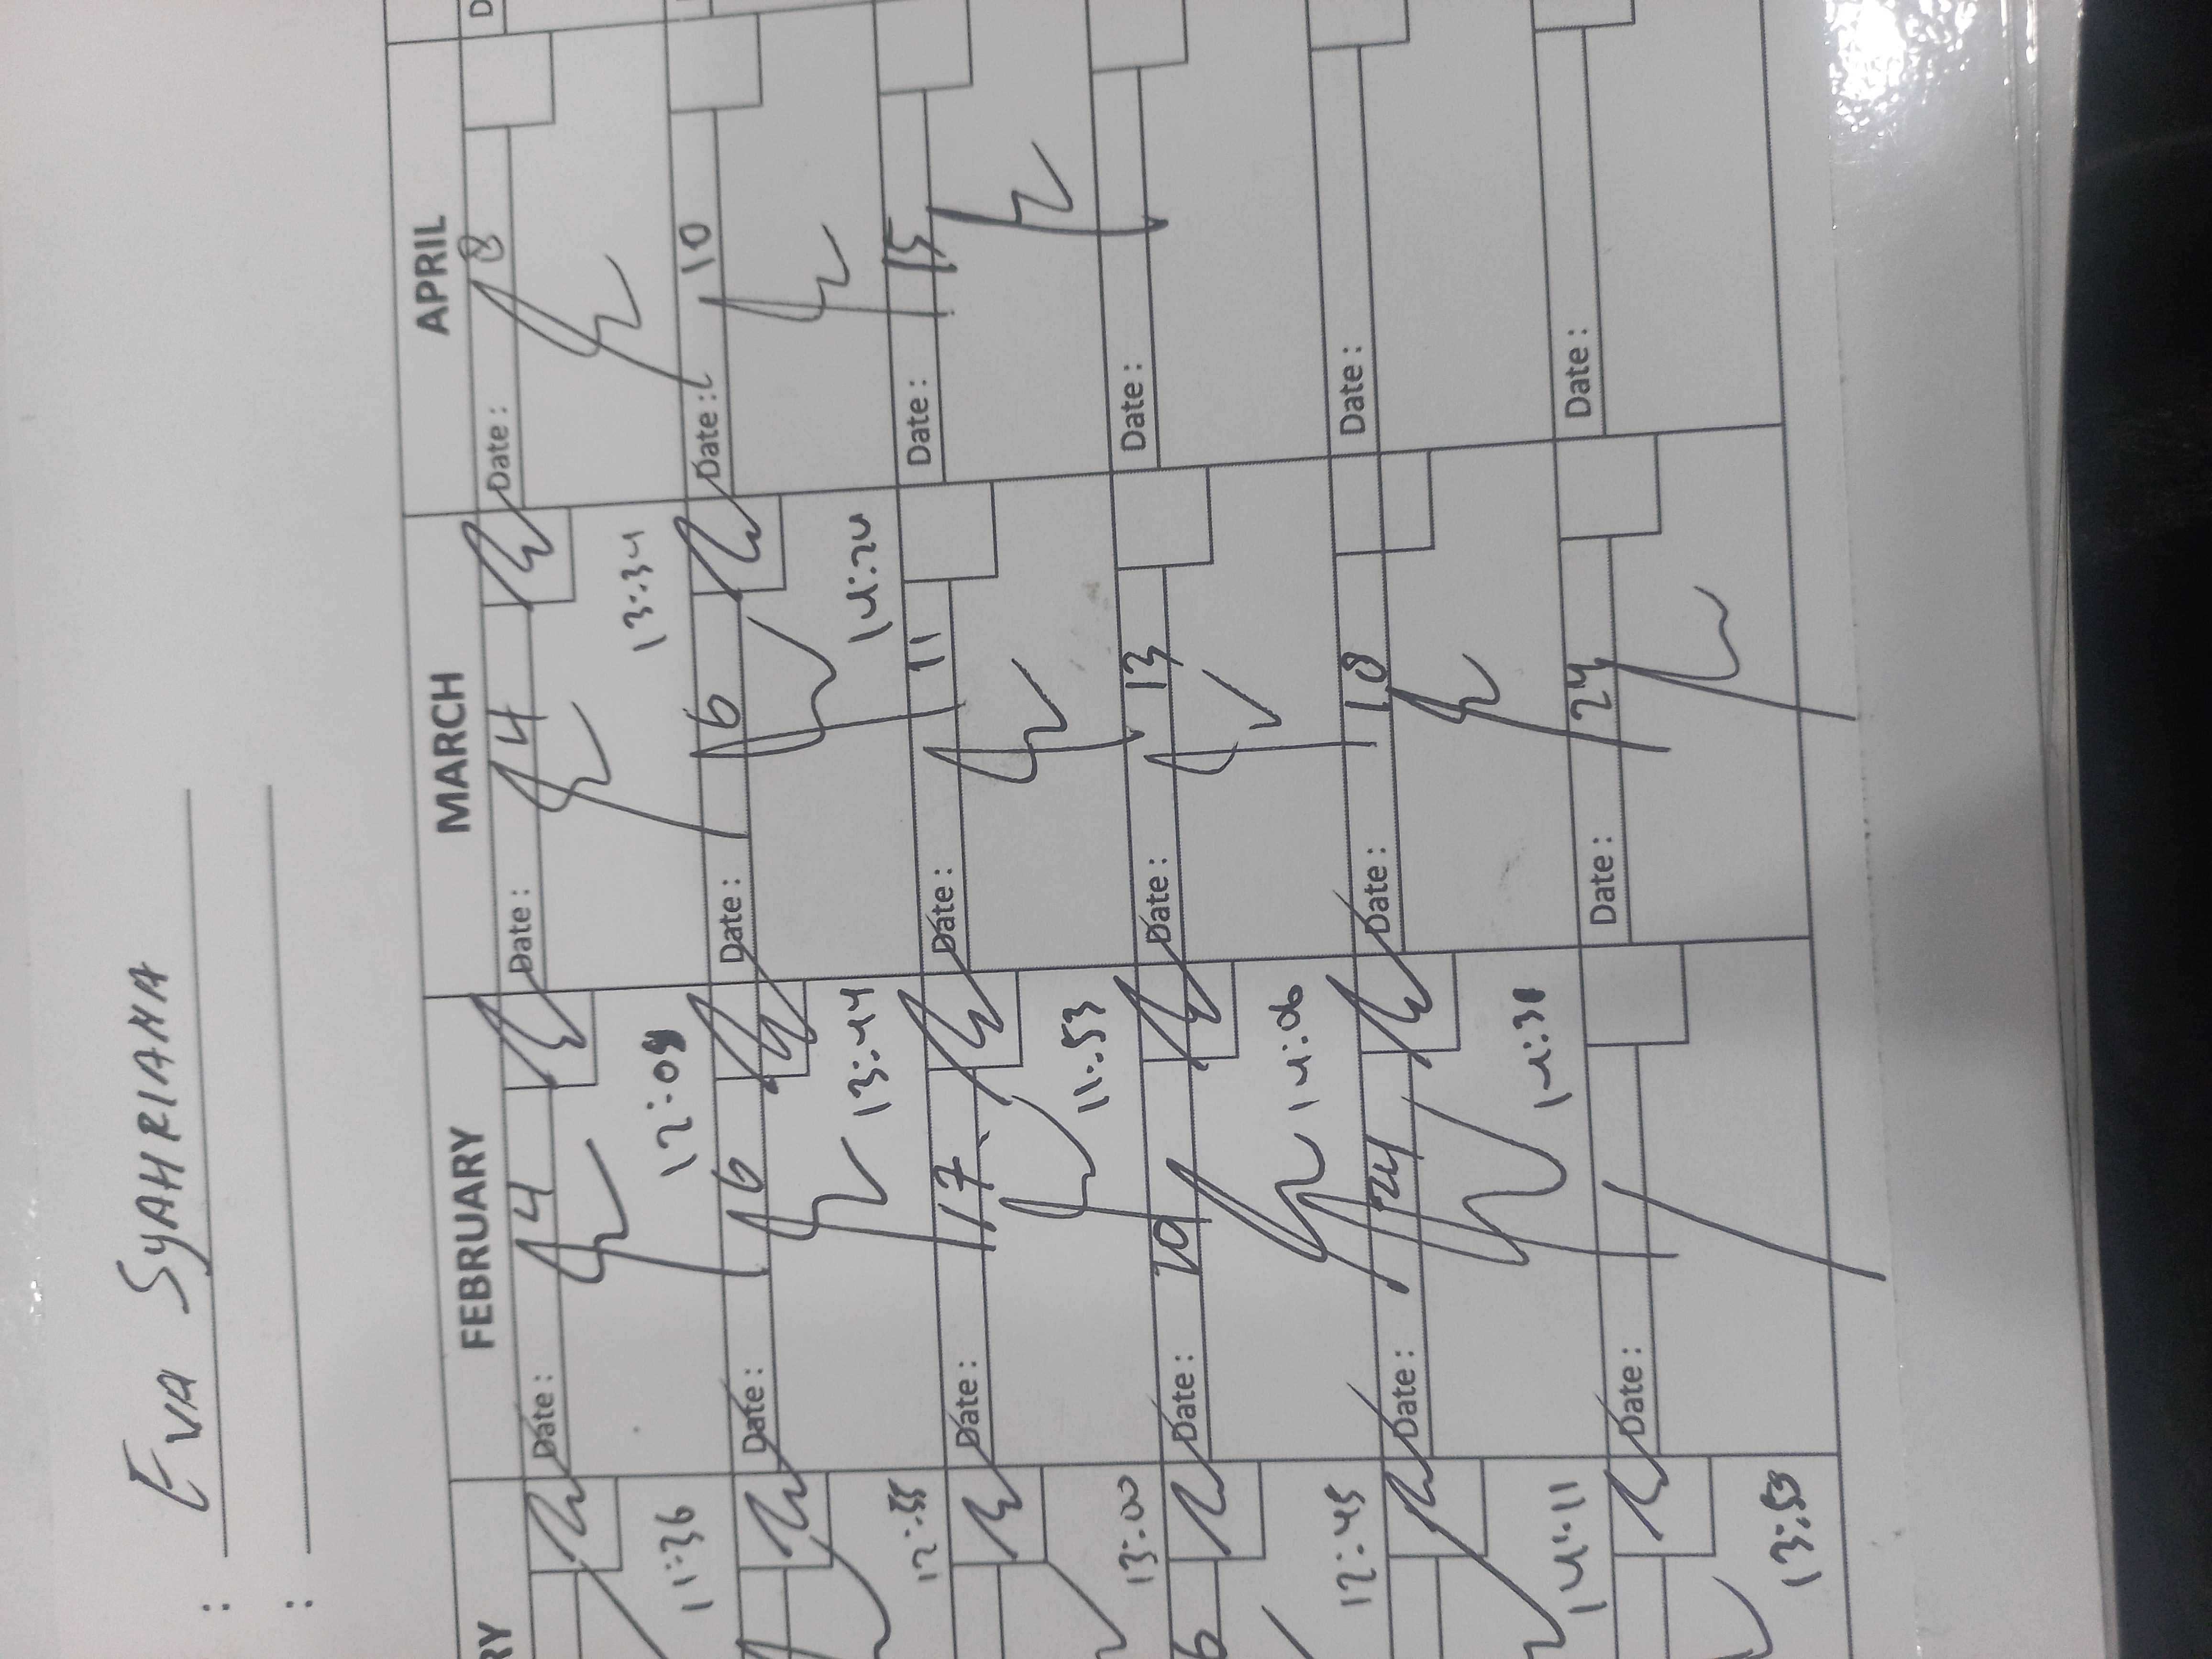 : EVA SYAHRIANA
:
RY FEBRUARY MARCH APRIL
Date: 4 Date: 4 Date: 8 D
11:36 12:09 13:34
Date: 6 Date: 6 Date: 10
12:55 13:44 14:24
Date: 17 Date: 11 Date: 15
13:00 11:53
6 Date: 19 Date: 13 Date:
12:45 14:06
Date: 24 Date: 18 Date:
14:11 14:38
Date: Date: 24 Date:
13:53